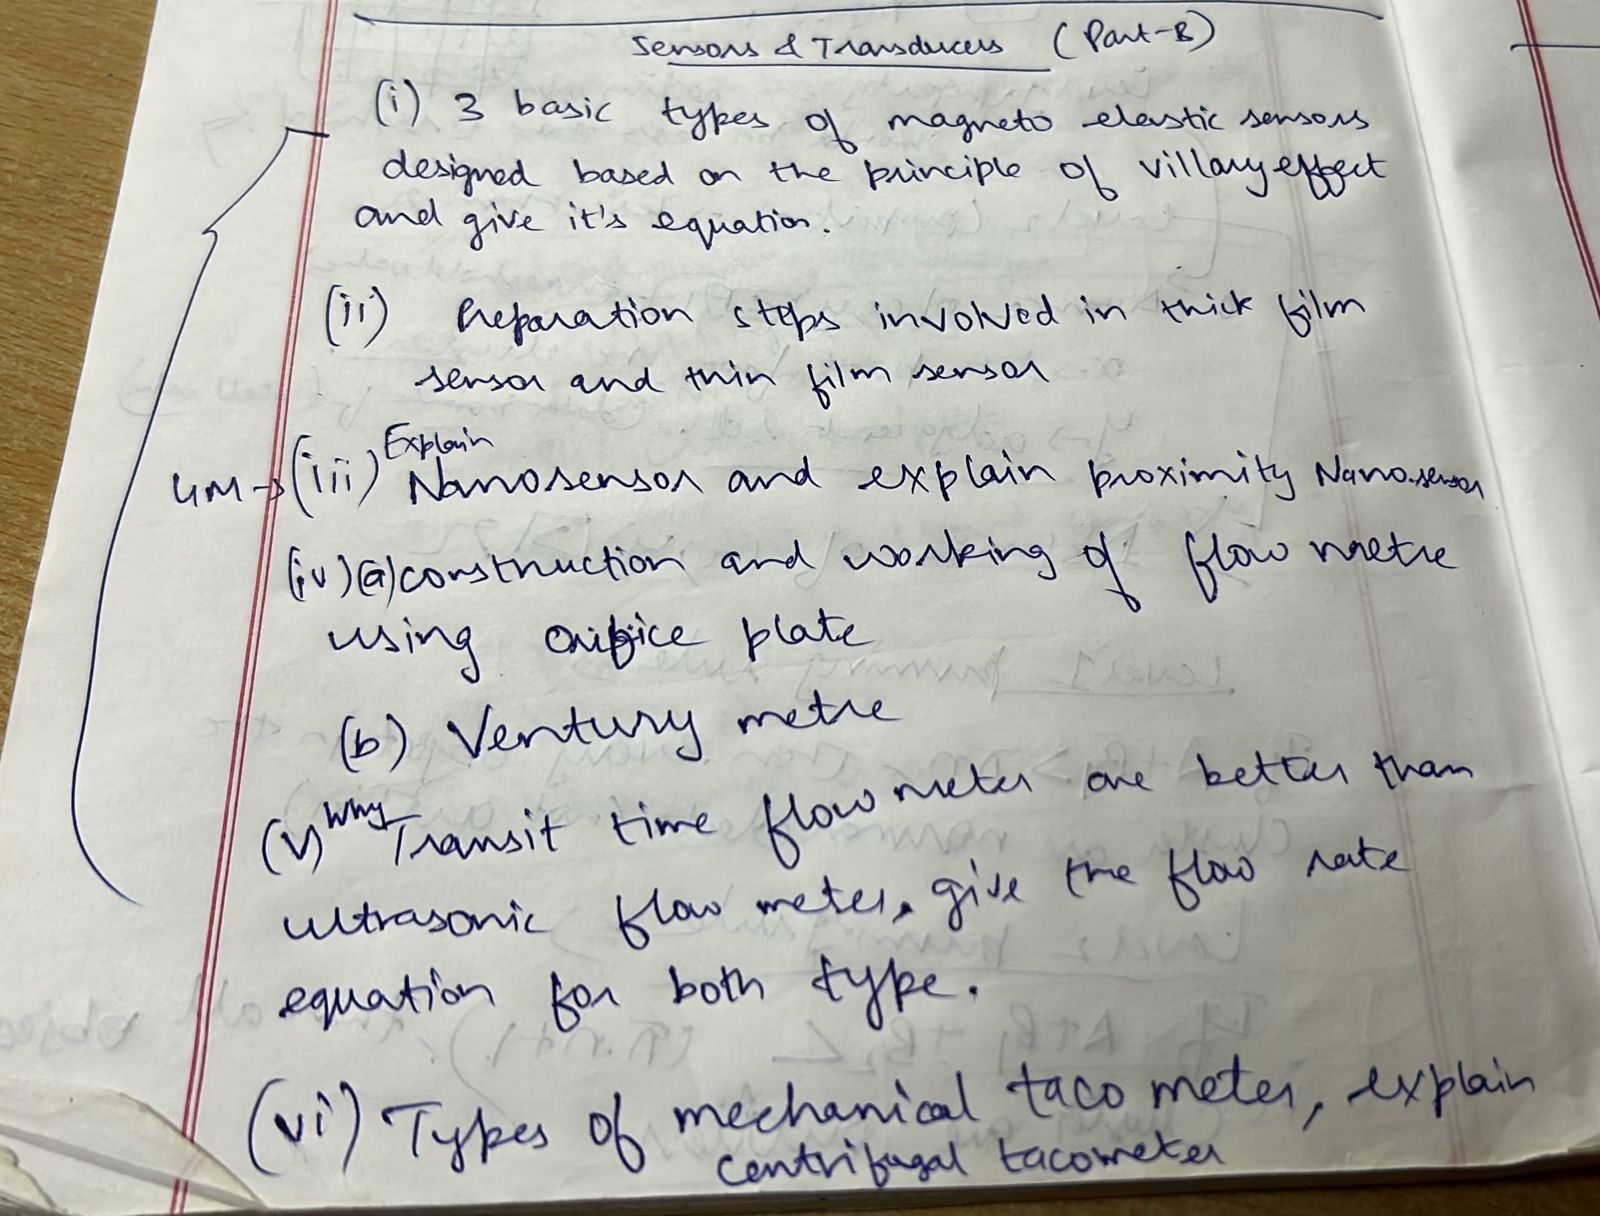 Sensors & Transducers (Part-B)
(i) 3 basic types of magneto elastic sensors
designed based on the principle of villary effect
and give it's equation.
(ii) Preparation steps involved in thick film
sensor and thin film sensor
Explain
4M → (iii) Nanosensor and explain proximity Nanosensor
(iv) (a) construction and working of flow metre
using orifice plate
(b) Ventury metre
(v) Why Transit time flow meter are better than
ultrasonic flow meter, give the flow rate
equation for both type.
(vi) Types of mechanical taco meter, explain
centrifugal tacometer